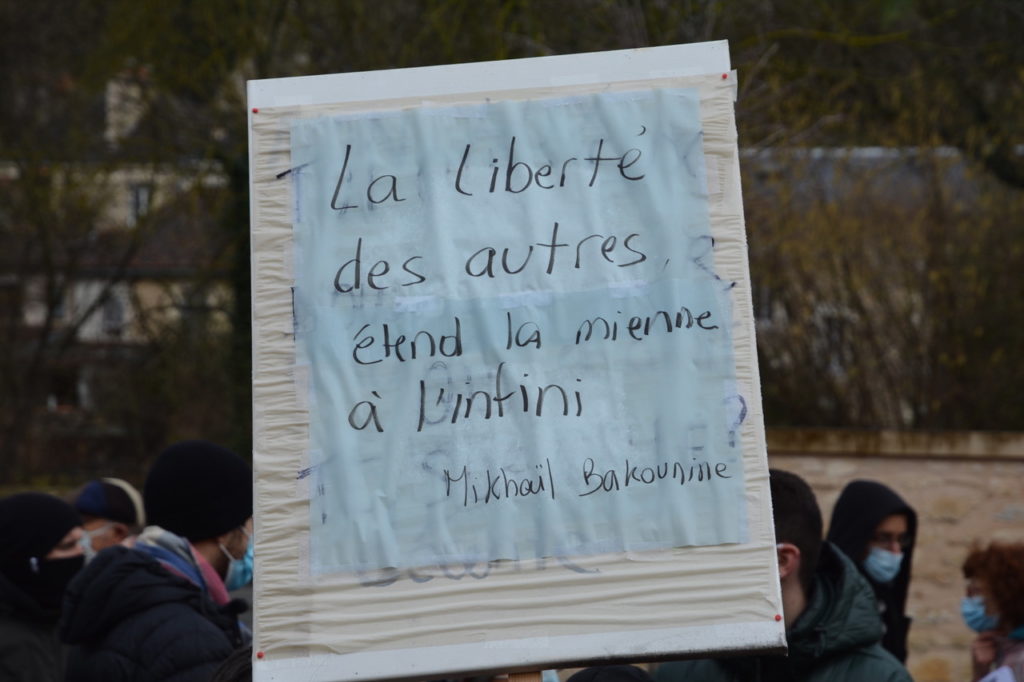 La liberté
des autres,
étend la mienne
à l'infini
Mikhaïl Bakounine